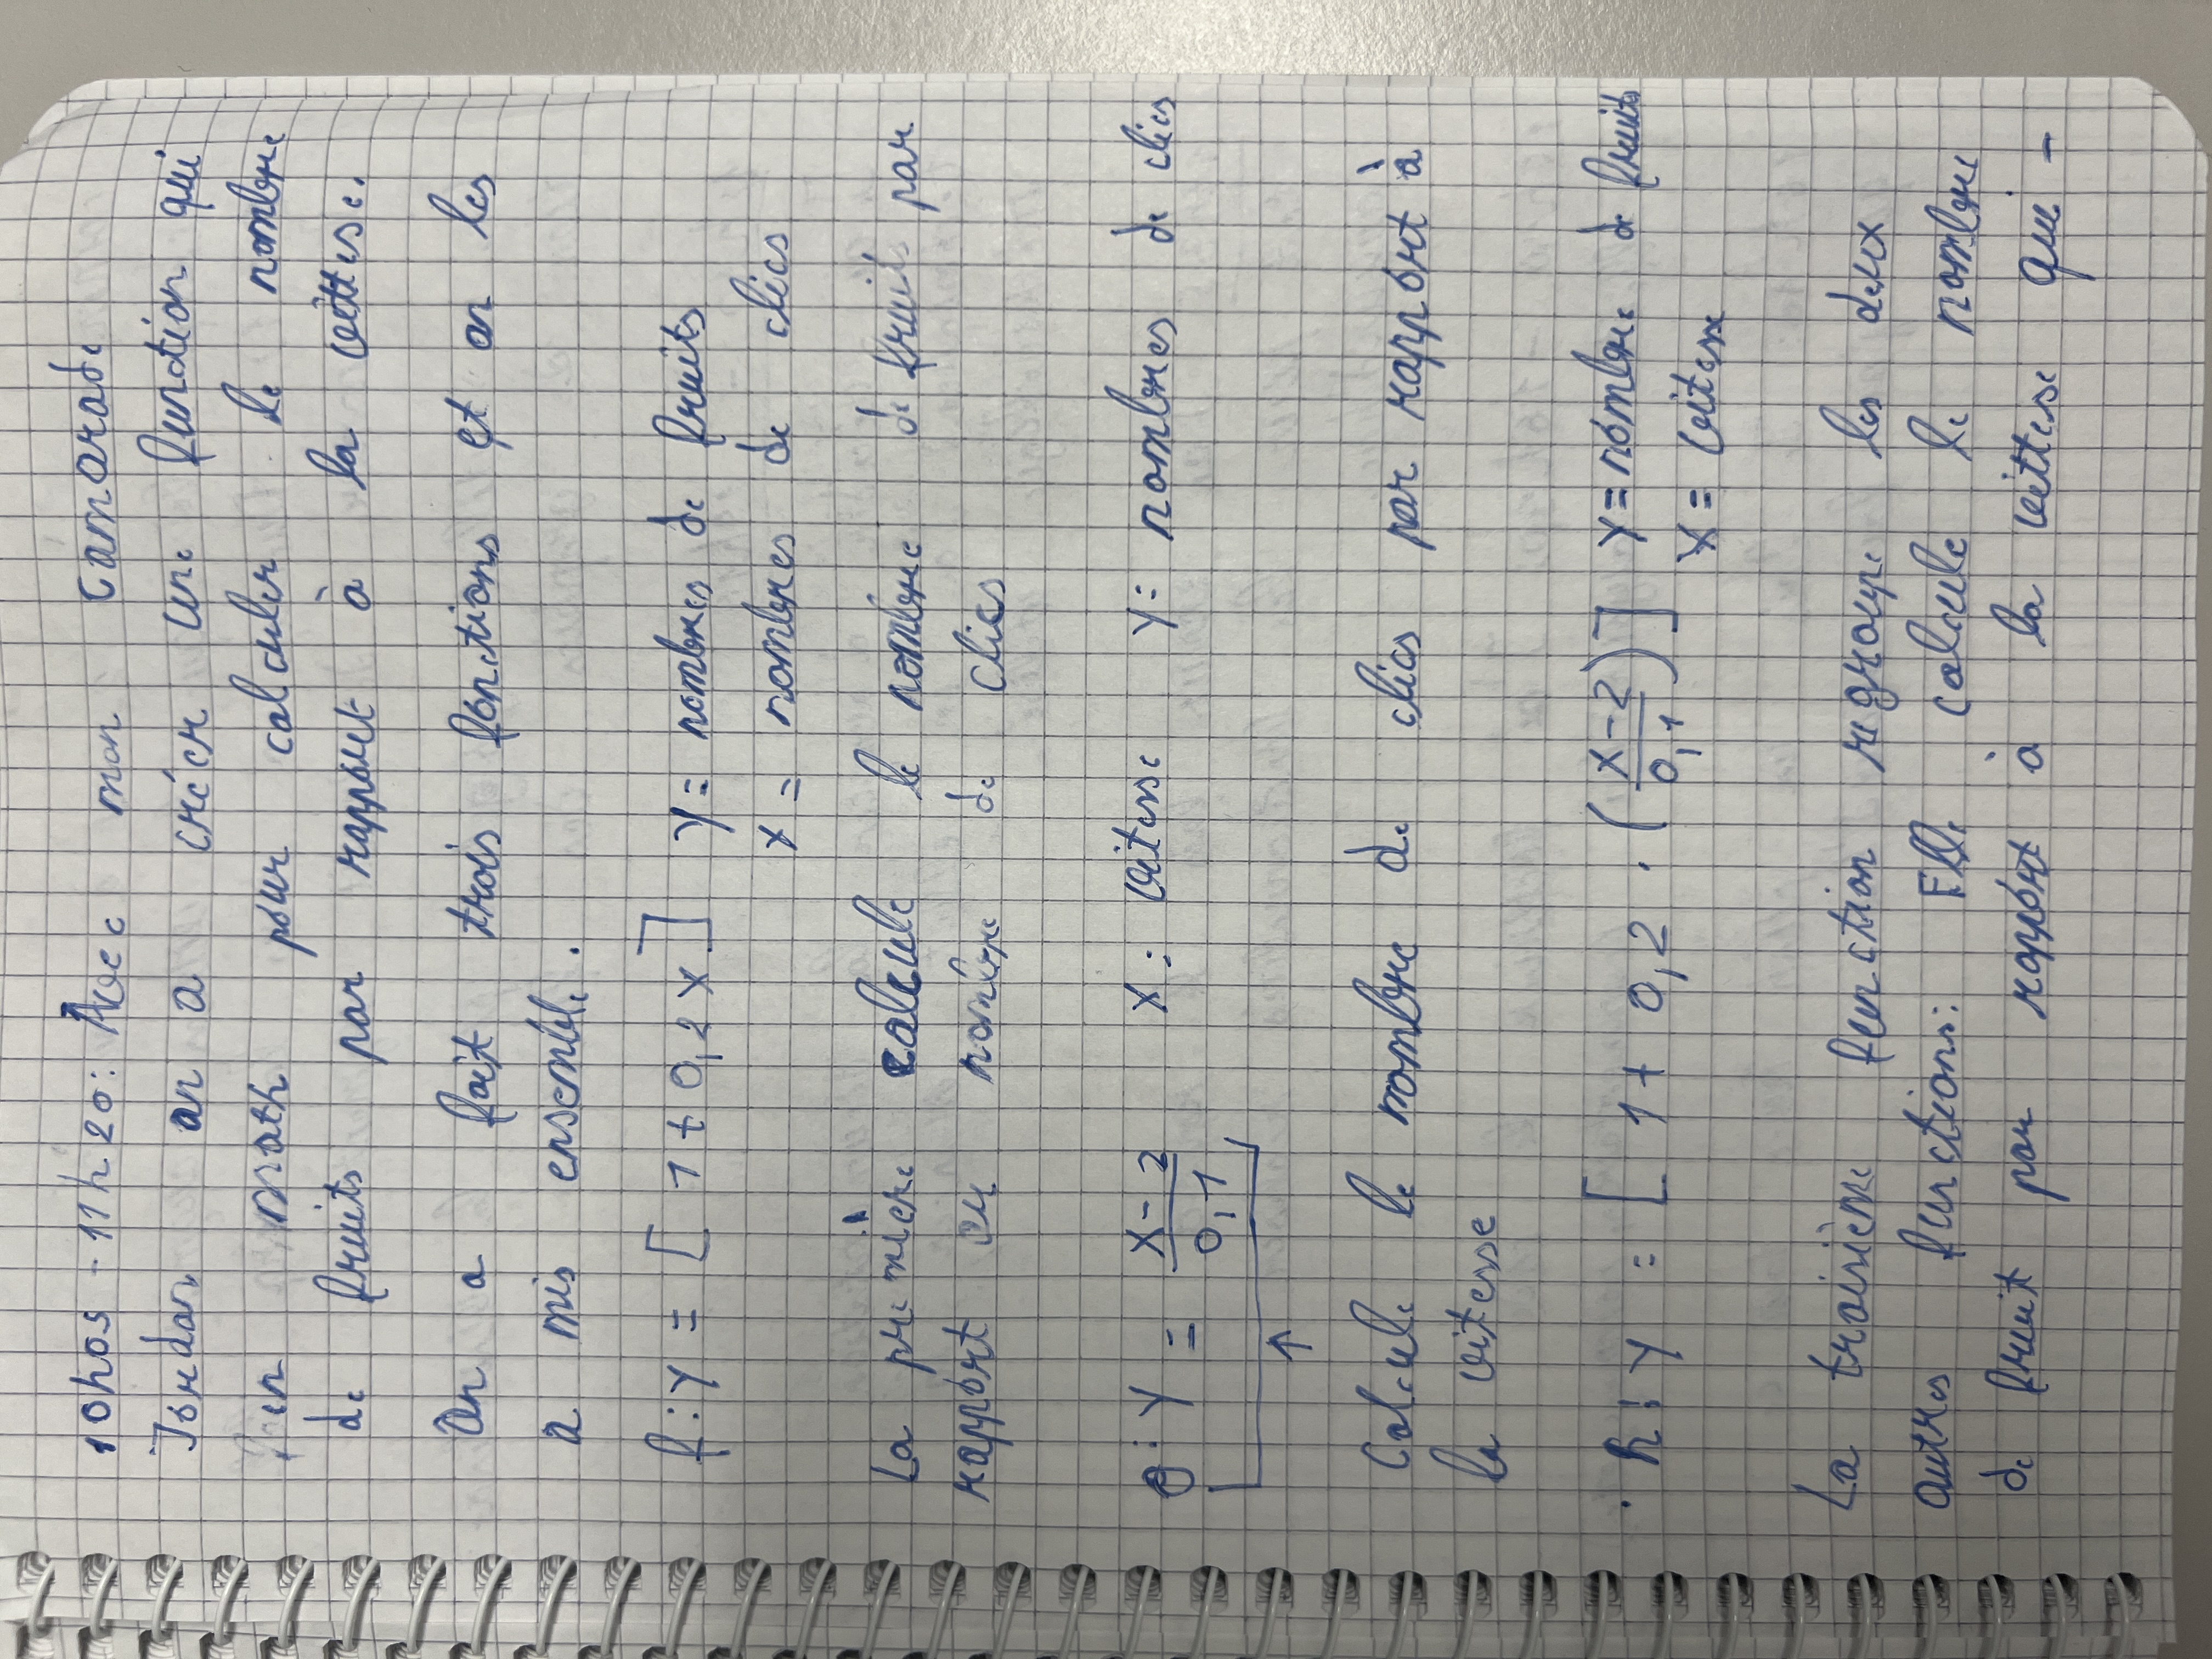 10h05 - 11h20: Avec mon camarade
Jordan on a créer une function qui
en math pour calculer le nombre
de fruits par rapport à la vittese.
On a fait trois fonctions et on les
a mis ensemble.
f: y = [ 1 + 0,2 x ] y = nombres de fruits
x = nombres de clics
La première calcule le nombre de fruits par
rapport au nombre de clics
: y = \frac{x - 2}{0,1} x: vitesse y: nombres de clics
↑
Calcule le nombre de clics par rapport à
la vitesse
· h: y = [ 1 + 0,2 · (\frac{x - 2}{0,1}) ] y = nombre de fruits
x = vitesse
La troisième function regroupe les deux
autres functions: Elle calcule le nombre
de fruit par rapport à la vittese qui -